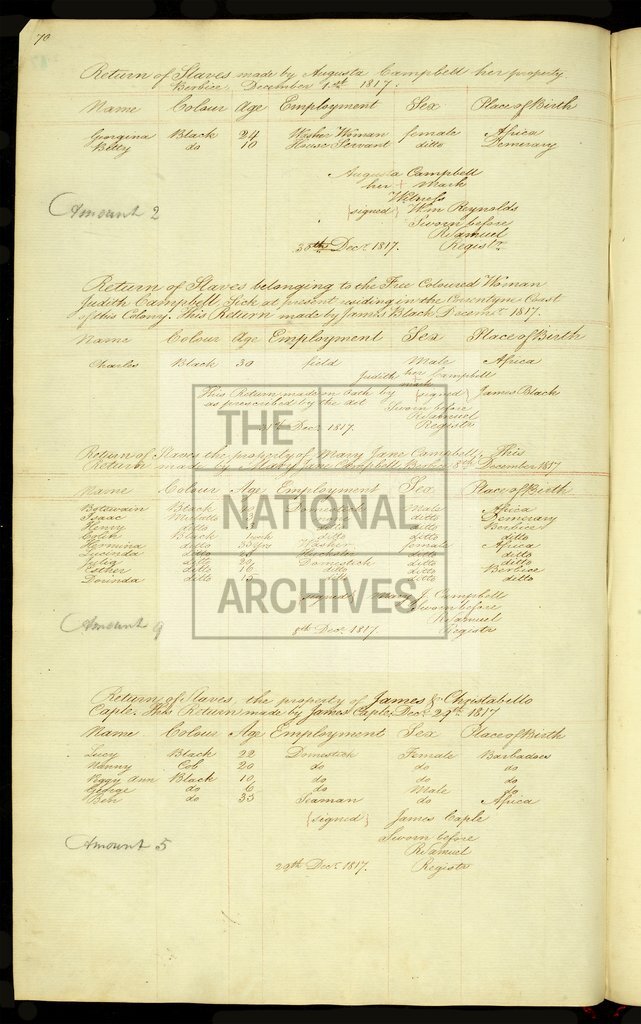 70
Return of Slaves made by Augusta Campbell her property
Berbice December 1st 1817.
Name Colour Age Employment Sex Place of Birth
Georgina Black 24 Washer Woman female Africa
Betty do 10 House Servant ditto Demerary
Augusta Campbell
her + mark
Witness
(signed) Wm Reynolds
Amount 2
Sworn before
R Samuel
30th Decr 1817. Registr
Return of Slaves belonging to the Free Coloured Woman
Judith Campbell Sick at present residing in the Corentyne Coast
of this Colony. This Return made by James Black Decemr 1817.
Name Colour Age Employment Sex Place of Birth
Charles Black 30 field Male Africa
Judith her Campbell
mark
This Return made on Oath by (signed) James Black
as prescribed by the Act Sworn before
R Samuel
31st Decr 1817. Registr
Return of Slaves the property of Mary Jane Campbell. This
Return made by Mary Jane Campbell Berbice 8th December 1817
Name Colour Age Employment Sex Place of Birth
Boatswain Black Domestick Male Africa
Isaac Mulatto ditto Demerary
Henry ditto ditto Berbice
Colin Black ditto ditto ditto
Hermina ditto Washer female Africa
Lucinda ditto Huckster ditto ditto
Julia ditto Domestick ditto ditto
Esther ditto 16 ditto ditto Berbice
Dorinda ditto ditto ditto ditto
signed Mary J. Campbell
Sworn before
Amount 9
R Samuel
8th Decr 1817. Registr
Return of Slaves, the property of James & Christabella
Caple. This Return made by James Caple Decr 29th 1817
Name Colour Age Employment Sex Place of Birth
Lucy Black 22 Domestick Female Barbadoes
Nanny Cob 20 do do do
Peggy Ann Black 10 do do do
George do 6 do Male do
Ben do 35 Seaman do Africa
(signed) James Caple
Sworn before
Amount 5
R Samuel
29th Decr 1817. Registr
THE
NATIONAL
ARCHIVES